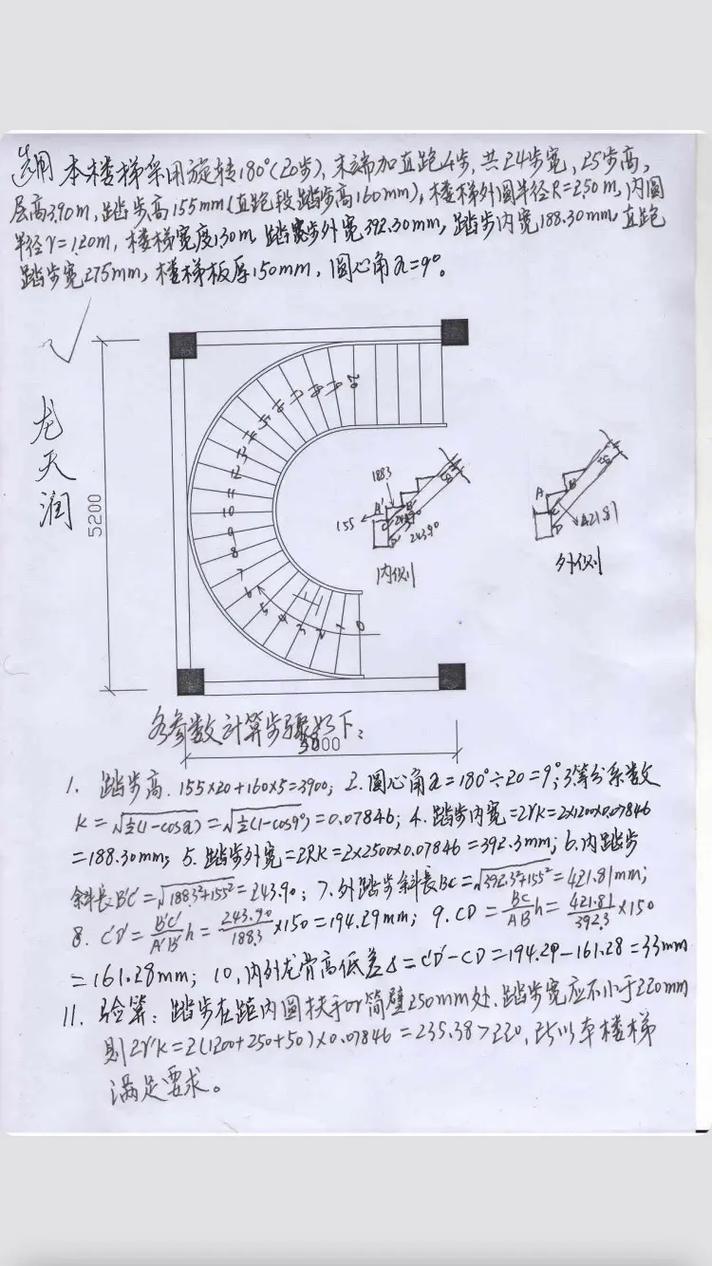 选用 本楼梯采用旋转180°(20步),末端加直跑4步,共24步宽,25步高,
层高3.90m,踏步高155mm(直跑段踏步高160mm),楼梯外圆半径R=2.50m,内圆
半径r=1.20m,楼梯宽度1.30m 踏步外宽392.30mm,踏步内宽188.30mm 直跑
踏步宽275mm,楼梯板厚150mm,圆心角a=9°。
龙天润
5200
20
12
11
10
9
8
7
6
5
4
3
2
1
0
上
1883
A'
155
24390
D'
内侧
A
B
C
D
42181
外侧
各参数计算步骤如下:
1. 踏步高.155×20+160×5=3900; 2.圆心角a=180°÷20=9°;3.等分系数
K=√½(1-cosa)=√½(1-cos9°)=0.07846; 4.踏步内宽=2rK=2×1200×0.07846
=188.30mm; 5.踏步外宽=2RK=2×2500×0.07846=392.3mm; 6.内踏步
斜长B'C'=√188.3²+155²=243.90; 7.外踏步斜长BC=√392.3²+155²=421.81mm;
8. C'D'=B'C'/A'B' h=243.90/188.3×150=194.29mm; 9. CD=BC/AB h=421.81/392.3×150
=161.28mm; 10.内外龙骨高低差Δ=C'D'-CD=194.29-161.28=33mm
11. 验算:踏步在距内圆扶手or筒壁250mm处,踏步宽应不小于220mm
则2r'K=2(1200+250+50)×0.07846=235.38>220,所以本楼梯
满足要求。